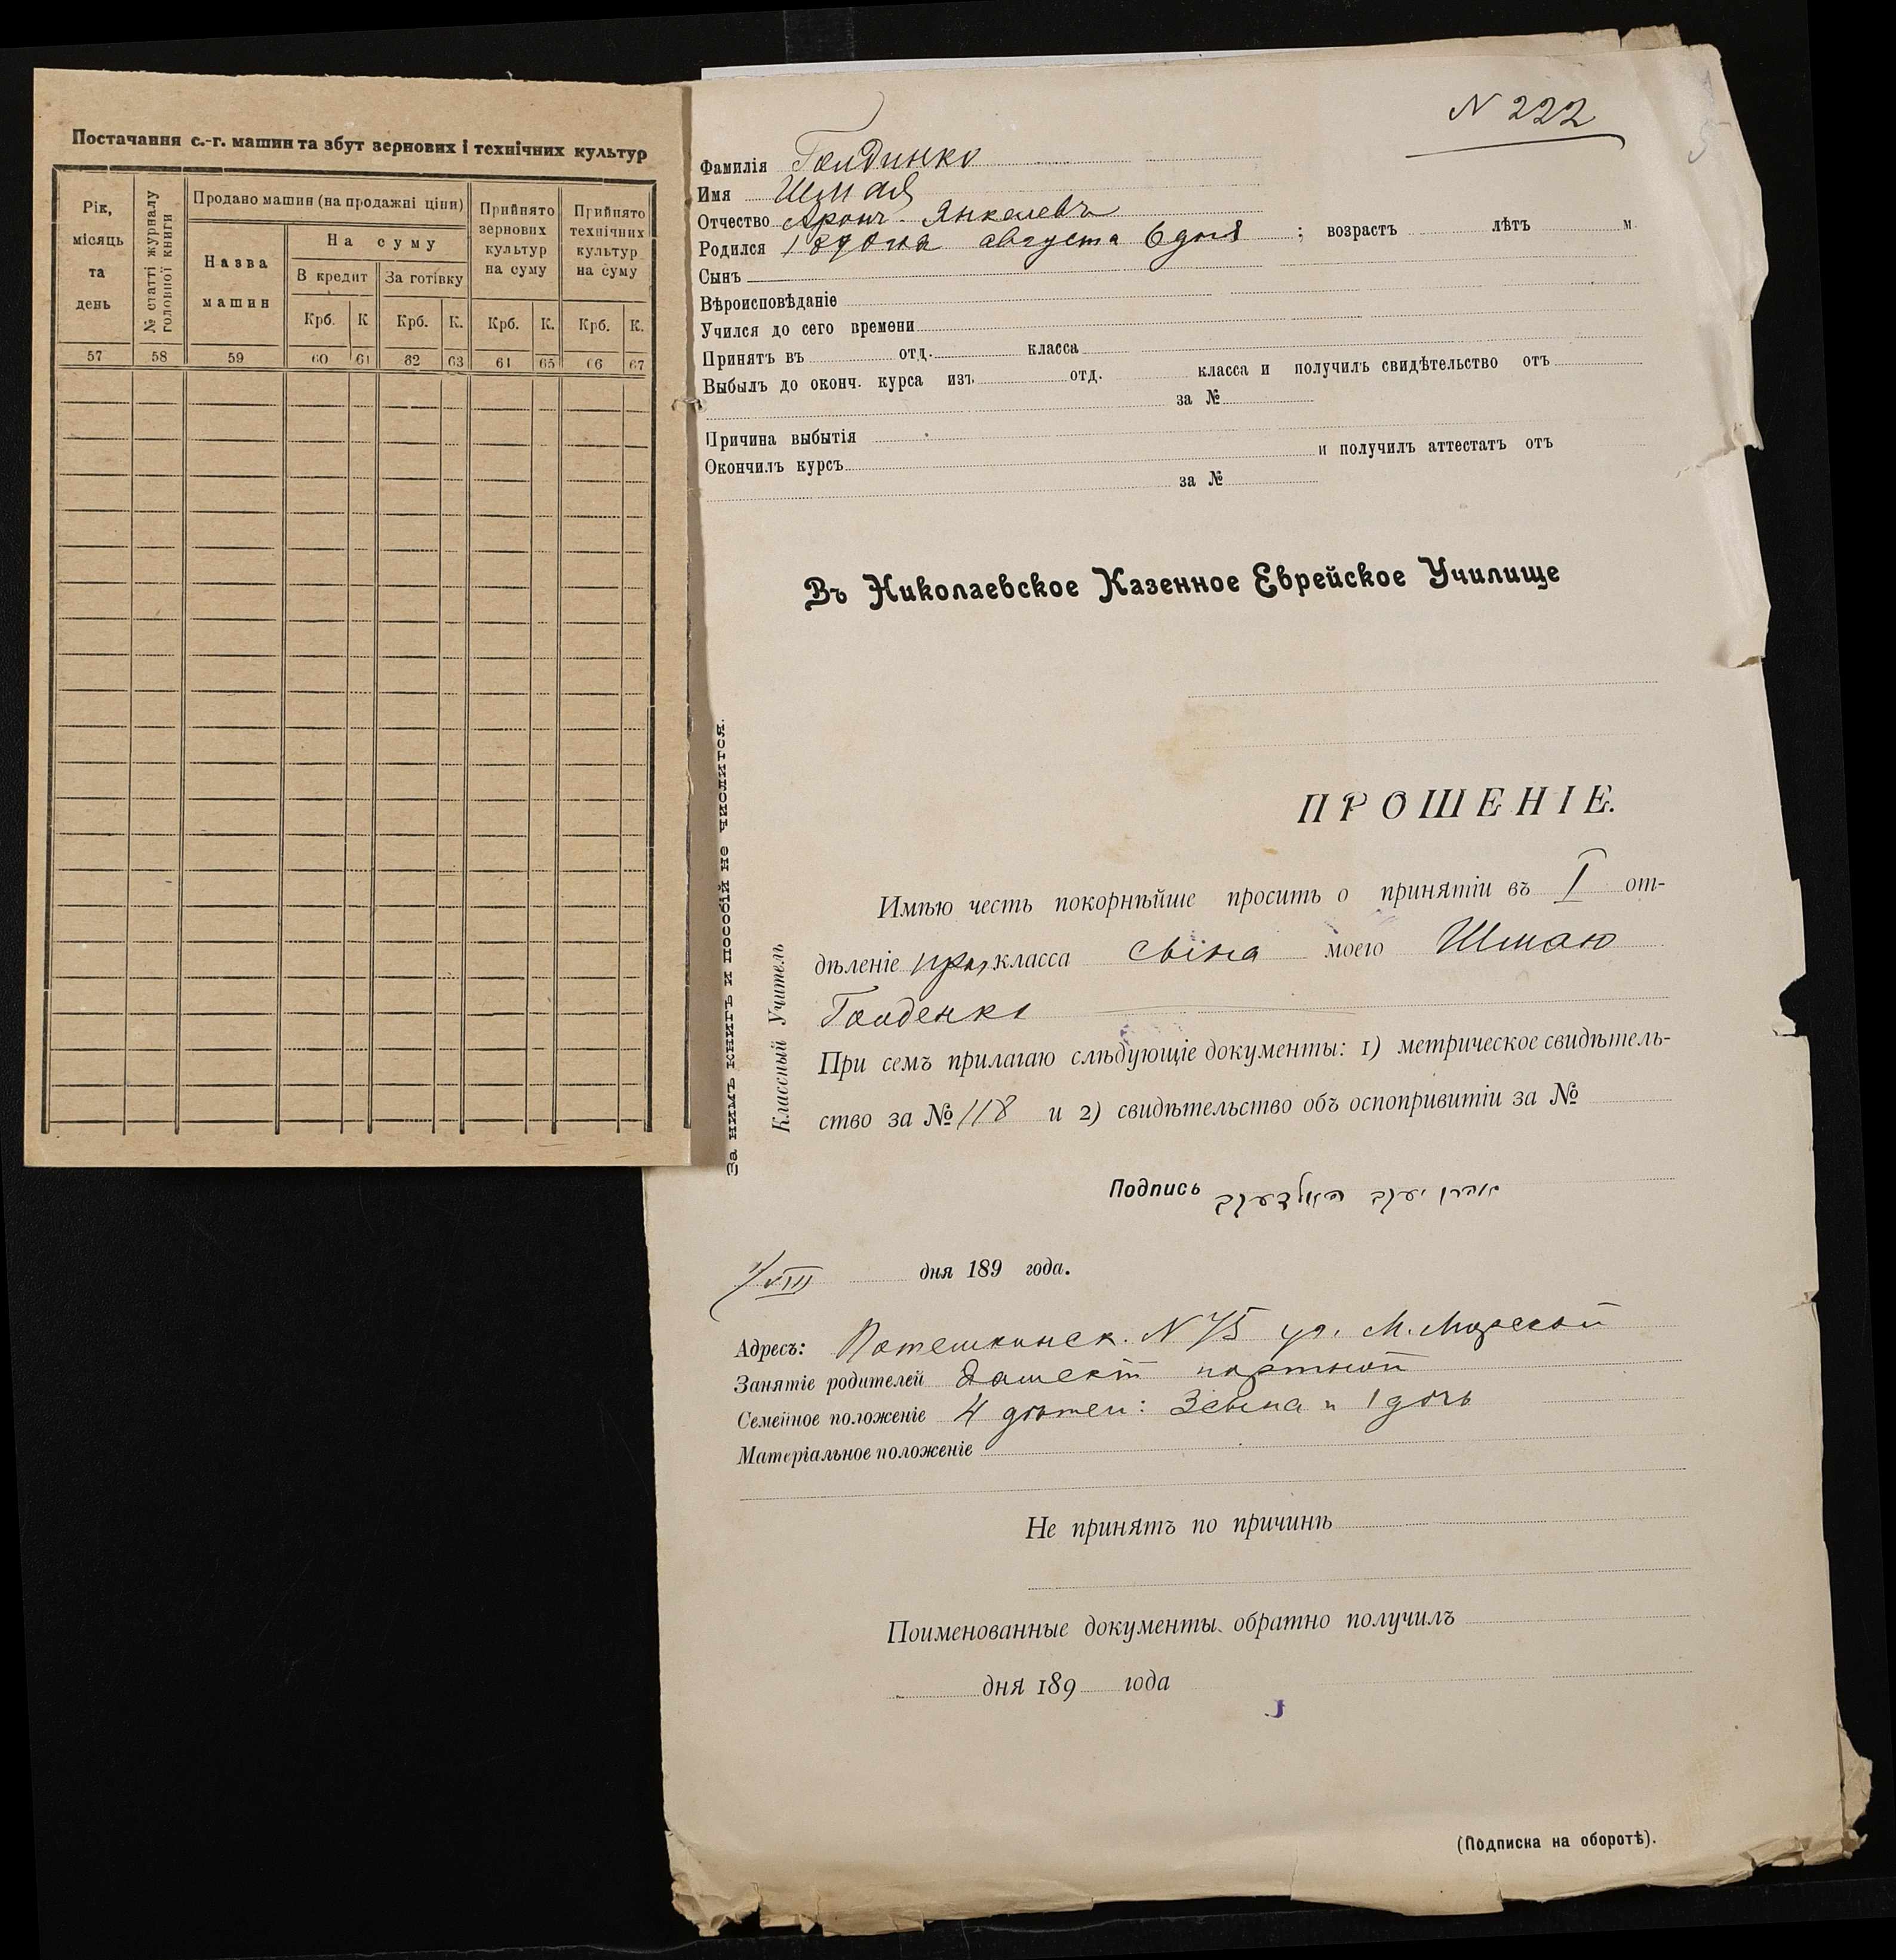 Постачання с.-г. машин та збут зернових і технічних культур
Рік, місяць та день
№ статті журналу головної книги
Продано машин (на продажні ціни)
Прийнято зернових культур на суму
Прийнято технічних культур на суму
Назва машин
На суму
В кредит
За готівку
Крб. К Крб. К. Крб. К. Крб. К.
57 58 59 60 61 62 63 64 65 66 67
N 222
Фамилія
Имя Шмая
Отчество Аронъ-Янкелевъ
Родился 1890 года августа 6 дня ; возрастъ лѣтъ м
Сынъ
Вѣроисповѣданіе
Учился до сего времени
Принятъ въ отд. класса
Выбылъ до оконч. курса изъ отд. класса и получилъ свидѣтельство отъ
за №
Причина выбытія
Окончилъ курсъ и получилъ аттестатъ отъ
за №
Въ Николаевское Казенное Еврейское Училище
ПРОШЕНІЕ.
Имѣю честь покорнѣйше просить о принятіи въ I от-
дѣленіе класса сына моего Шмаю
При семъ прилагаю слѣдующіе документы: 1) метрическое свидѣтель-
ство за № 118 и 2) свидѣтельство объ оспопривитіи за №
Подпись
1/VIII дня 189 года.
Адресъ: Потемкинск. N 75 уг. М. Морской
Занятіе родителей дамскій портной
Семейное положеніе 4 дѣтей: 3 сына и 1 дочь
Матеріальное положеніе
Не принятъ по причинѣ
Поименованные документы обратно получилъ
дня 189 года
(Подписка на оборотѣ).
Классный Учитель
За нимъ книгъ и пособій не числится.